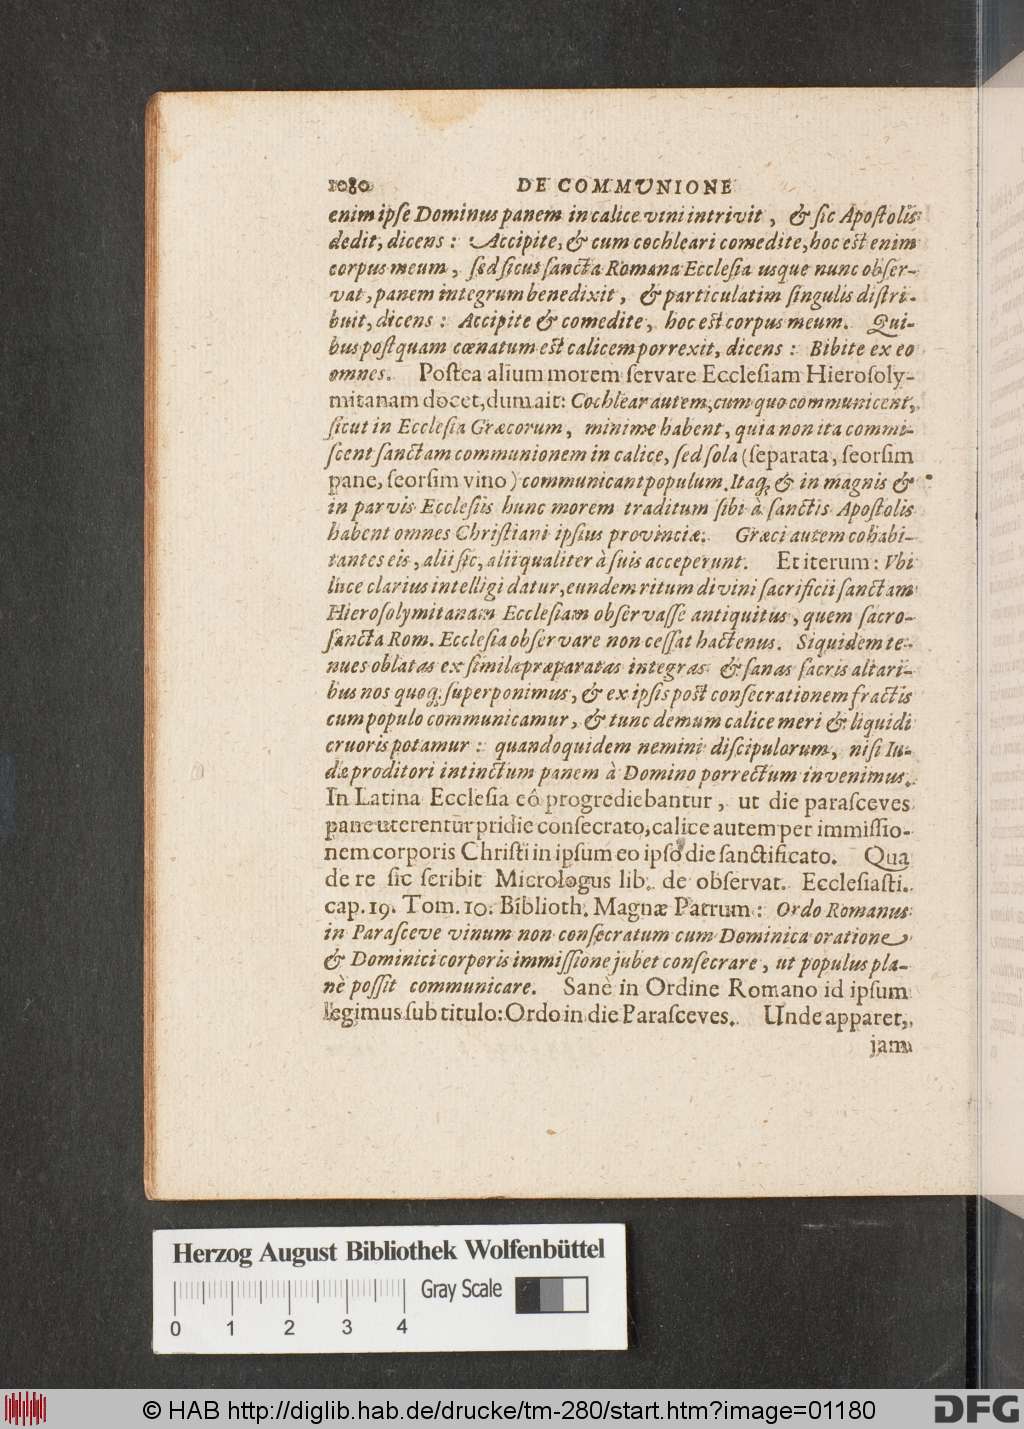 1080 DE COMMVNIONE
enim ipſe Dominus panem in calice vini intrivit, & ſic Apoſtolis
dedit, dicens: Accipite, & cum cochleari comedite, hoc eſt enim
corpus meum, ſed ſicut ſancta Romana Eccleſia usque nunc obſer-
vat, panem integrum benedixit, & particulatim ſingulis diſtri-
buit, dicens: Accipite & comedite, hoc eſt corpus meum. Qui-
bus poſtquam cœnatum eſt calicem porrexit, dicens: Bibite ex eo
omnes. Poſtea alium morem ſervare Eccleſiam Hieroſoly-
mitanam docet, dum ait: Cochlear autem, cum quo communicent,
ſicut in Eccleſia Græcorum, minime habent, quia non ita commi-
ſcent ſanctam communionem in calice, ſed ſola (ſeparata, ſeorſim
pane, ſeorſim vino) communicant populum. Itaq; & in magnis &
in parvis Eccleſiis hunc morem traditum ſibi à ſanctis Apoſtolis
habent omnes Chriſtiani ipſius provinciæ. Græci autem cohabi-
tantes eis, alii ſic, alii qualiter à ſuis acceperunt. Et iterum: Vbi
luce clarius intelligi datur, eundem ritum divini ſacrificii ſanctam
Hieroſolymitanam Eccleſiam obſervaſſe antiquitus, quem ſacro-
ſancta Rom. Eccleſia obſervare non ceſſat hactenus. Siquidem te-
nues oblatas ex ſimila præparatas integras & ſanas ſacris altari-
bus nos quoq; ſuperponimus, & ex ipſis poſt conſecrationem fractis
cum populo communicamur, & tunc demum calice meri & liquidi
cruoris potamur: quandoquidem nemini diſcipulorum, niſi Iu-
dæ proditori intinctum panem à Domino porrectum invenimus.
In Latina Eccleſia eô progrediebantur, ut die paraſceves
pane uterentur pridie conſecrato, calice autem per immiſſio-
nem corporis Chriſti in ipſum eo ipſo die ſanctificato. Qua
de re ſic ſcribit Micrologus lib. de obſervat. Eccleſiaſti.
cap. 19. Tom. 10. Biblioth. Magnæ Patrum: Ordo Romanus
in Paraſceve vinum non conſecratum cum Dominica oratione
& Dominici corporis immiſſione jubet conſecrare, ut populus pla-
nè poſſit communicare. Sanè in Ordine Romano id ipſum
legimus ſub titulo: Ordo in die Paraſceves. Unde apparet,
jam
Herzog August Bibliothek Wolfenbüttel
Gray Scale
0 1 2 3 4
© HAB http://diglib.hab.de/drucke/tm-280/start.htm?image=01180
DFG